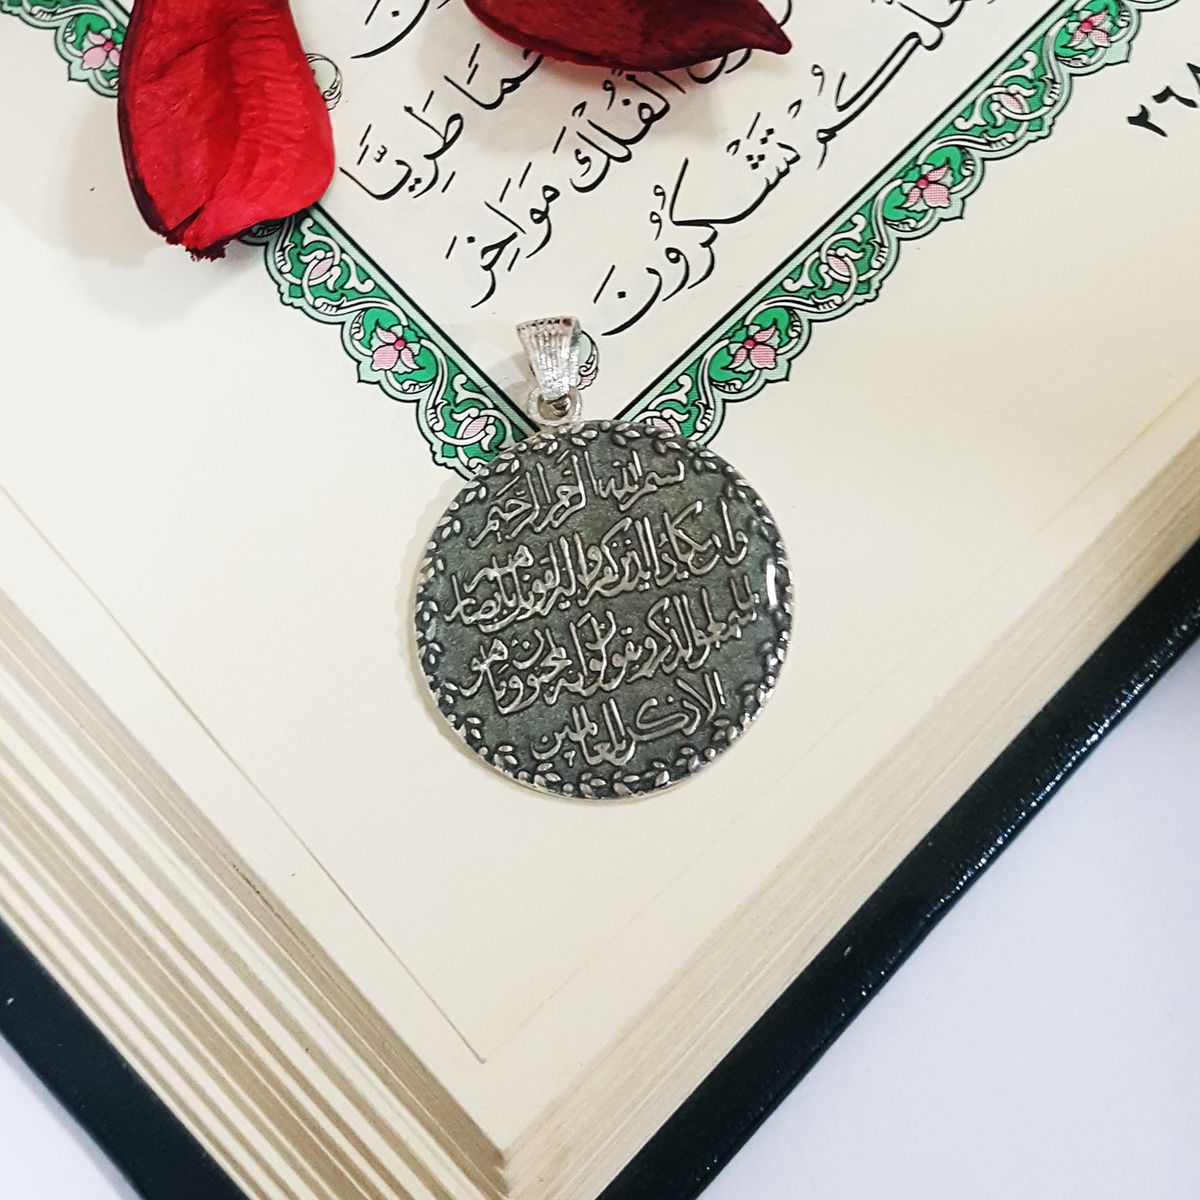 لَحْمًا طَرِيًّا
الْفُلْكَ مَوَاخِرَ
لَعَلَّكُمْ تَشْكُرُونَ
٢٦٨
بسم الله الرحمن الرحيم
وان يكاد الذين كفروا ليزلقونك بابصارهم
لما سمعوا الذكر ويقولون انه لمجنون وما هو
الا ذكر للعالمين